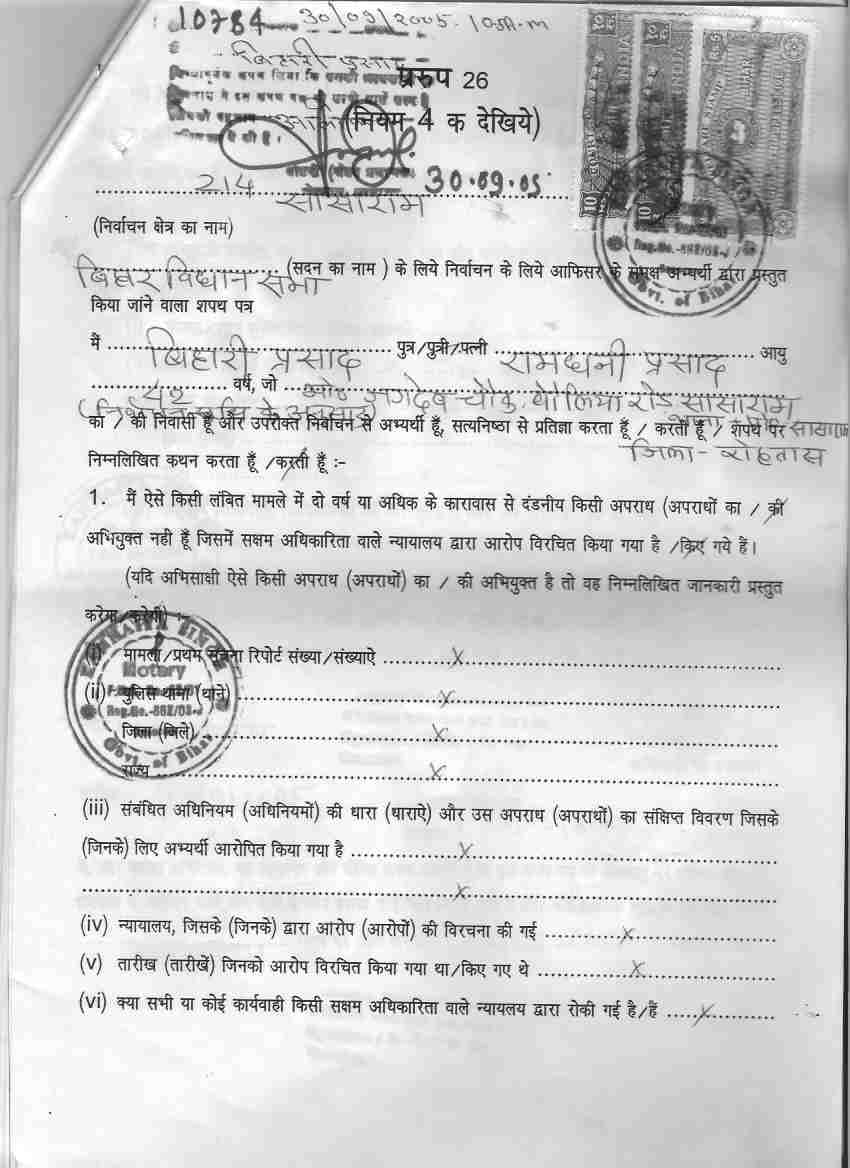 10784 30/09/2005
बिहारी प्रसाद
प्ररूप 26
(नियम 4 क देखिये)
30.09.05
214
सासाराम
(निर्वाचन क्षेत्र का नाम)
बिहार विधान सभा (सदन का नाम ) के लिये निर्वाचन के लिये आफिसर के समक्ष अभ्यर्थी द्वारा प्रस्तुत
किया जांने वाला शपथ पत्र
मैं बिहारी प्रसाद पुत्र/पुत्री/पत्नी रामधनी प्रसाद आयु
42 वर्ष, जो जगदेव चौक, रोड सासाराम
का / की निवासी हूँ और उपरोक्त निर्वाचन से अभ्यर्थी हूँ, सत्यनिष्ठा से प्रतिज्ञा करता हूँ / करती हूँ / शपथ पर सासाराम
जिला - रोहतास
निम्नलिखित कथन करता हूँ /करती हूँ :-
1. मैं ऐसे किसी लंबित मामले में दो वर्ष या अधिक के कारावास से दंडनीय किसी अपराध (अपराधों का / की
अभियुक्त नही हूँ जिसमें सक्षम अधिकारिता वाले न्यायालय द्वारा आरोप विरचित किया गया है /किए गये हैं।
(यदि अभिसाक्षी ऐसे किसी अपराध (अपराधों) का / की अभियुक्त है तो वह निम्नलिखित जानकारी प्रस्तुत
करेगा/करेगी)
(i) मामला/प्रथम सूचना रिपोर्ट संख्या/संख्याऐ x
(ii) पुलिस थाना (थाने) x
जिला (जिले) x
राज्य x
(iii) संबंधित अधिनियम (अधिनियमों) की धारा (धाराऐ) और उस अपराध (अपराधों) का संक्षिप्त विवरण जिसके
(जिनके) लिए अभ्यर्थी आरोपित किया गया है x
x
(iv) न्यायालय, जिसके (जिनके) द्वारा आरोप (आरोपों) की विरचना की गई x
(v) तारीख (तारीखें) जिनको आरोप विरचित किया गया था/किए गए थे x
(vi) क्या सभी या कोई कार्यवाही किसी सक्षम अधिकारिता वाले न्यायलय द्वारा रोकी गई है/हैं x
Notary
Govt. of Bihar